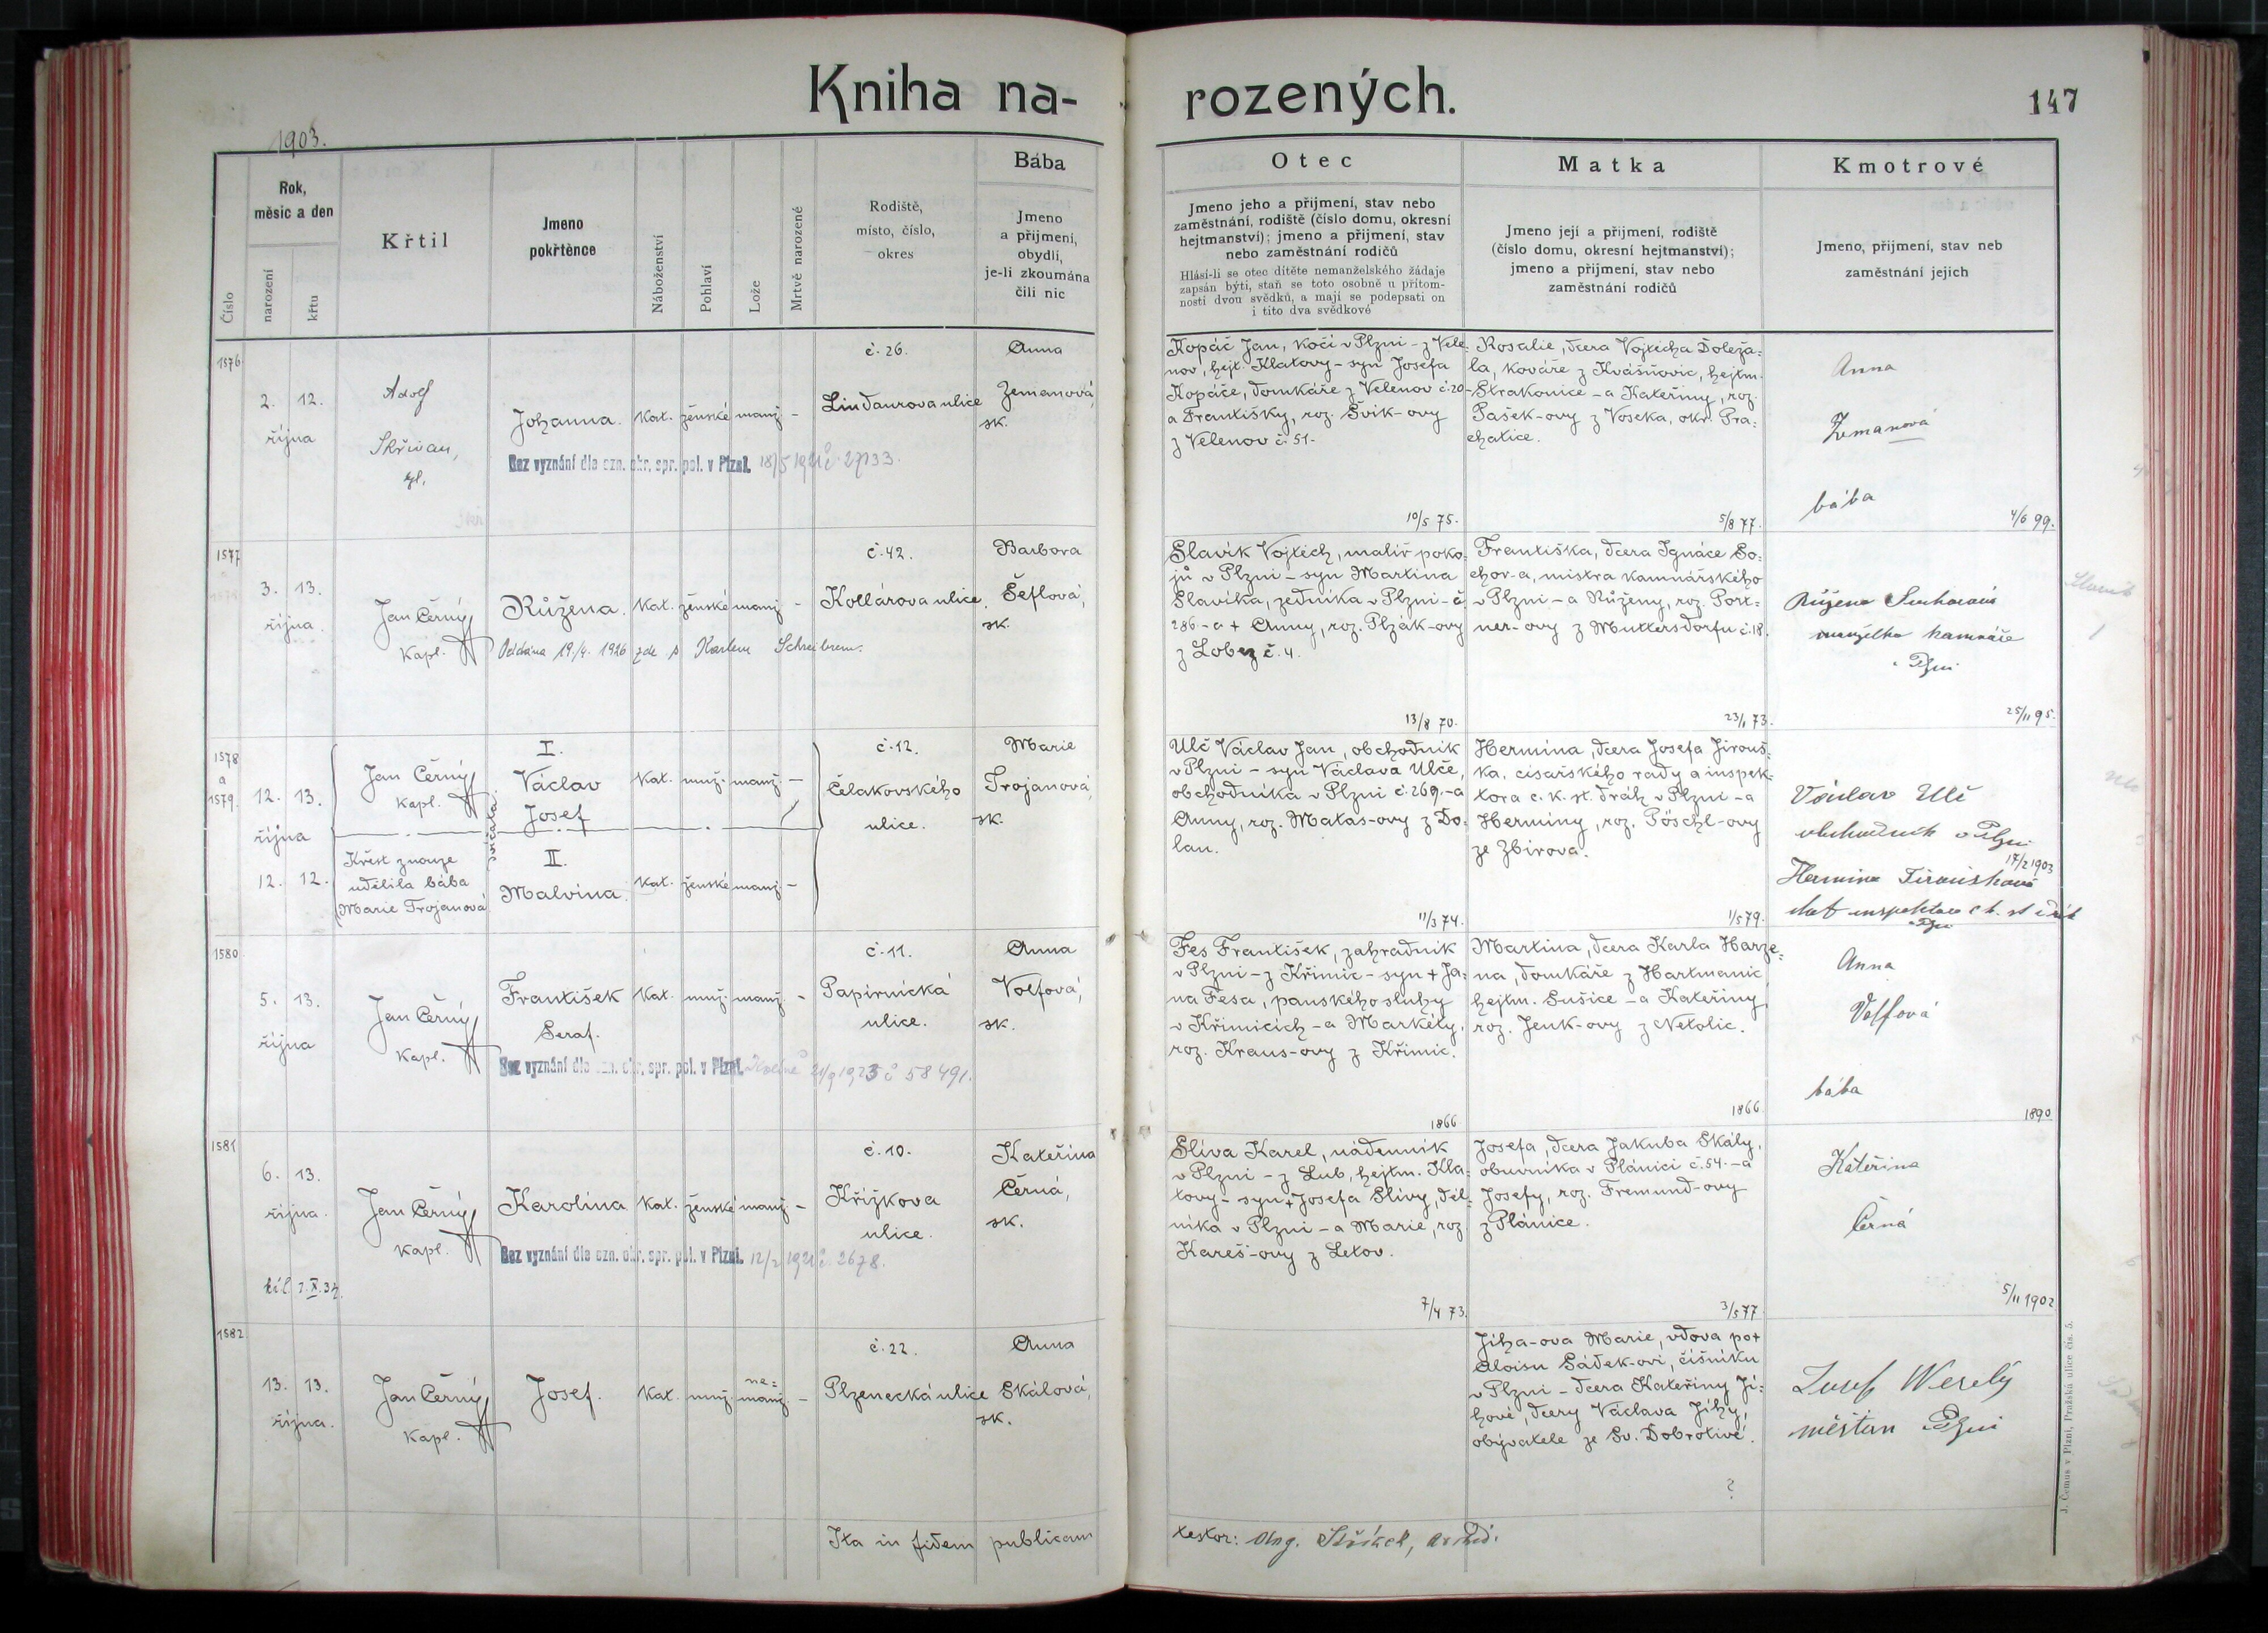 Kniha na-
rozených.
147
1903.
Číslo
Rok,
měsíc a den
narození
křtu
Křtil
Jmeno
pokřtěnce
Náboženství
Pohlaví
Lože
Mrtvě narozené
Rodiště,
místo, číslo,
okres
Bába
Jmeno
a příjmení,
obydlí,
je-li zkoumána
čili nic
Otec
Jmeno jeho a příjmení, stav nebo
zaměstnání, rodiště (číslo domu, okresní
hejtmanství); jmeno a příjmení, stav
nebo zaměstnání rodičů
Hlásí-li se otec dítěte nemanželského žádaje
zapsán býti, staň se toto osobně u přítom-
nosti dvou svědků, a mají se podepsati on
i tito dva svědkové
Matka
Jmeno její a příjmení, rodiště
(číslo domu, okresní hejtmanství);
jmeno a příjmení, stav nebo
zaměstnání rodičů
Kmotrové
Jmeno, příjmení, stav neb
zaměstnání jejich
1576
2. 12.
října
Adolf
Skřivan,
Johanna.
Kat. ženské manž. -
Bez vyznání dle ozn. okr. spr. pol. v Plzni. 18/5 1921 č. 27133.
č. 26.
Lindaurova ulice
Anna
Zemanová,
sk.
Kopáč Jan, kočí v Plzni - z Vele-
nov, hejt. Klatovy - syn Josefa
Kopáče, domkáře z Velenov č. 20
a Františky, roz. Švik-ovy
z Velenov č. 51.
10/5 75.
Rosalie, dcera Vojtěcha Doleža-
la, kováře z Kvášňovic, hejtm.
Strakonice - a Kateřiny, roz.
Pašek-ovy z Voseka, okr. Pra-
chatice.
5/8 77.
Anna
Zemanová
bába
4/6 99.
1577
3. 13.
října
Jan Černý
kapl.
Růžena.
Kat. ženské manž. -
Oddána 19./4. 1926 zde s Karlem Schreibrem.
č. 42.
Kollárova ulice.
Barbora
Šeflová,
sk.
Slavík Vojtěch, malíř poko-
jů v Plzni - syn Martina
Slavíka, zedníka v Plzni - č.
286 - a + Anny, roz. Plzák-ovy
z Lobez č. 4.
13/8 70.
Františka, dcera Ignáce So-
chor-a, mistra kamnářského
v Plzni - a Růženy, roz. Port-
ner-ovy z Muttersdorfu č. 18.
23/1 73.
Růžena Suchorová
manželka kamnáře
v Plzni
25/11 95.
1578
a
1579.
12. 13.
října
12. 12.
Jan Černý
kapl.
Křest z nouze
udělila bába
Marie Trojanová
dvojčata.
I.
Václav
Josef
Kat. muž. manž. -
II.
Malvina.
Kat. ženské manž. -
č. 12.
Čelakovského
ulice.
Marie
Trojanová,
sk.
Ulč Václav Jan, obchodník
v Plzni - syn Václava Ulče,
obchodníka v Plzni č. 269. - a
Anny, roz. Matas-ovy z Do-
lan.
11/3 74.
Hermina, dcera Josefa Jirouš-
ka, císařského rady a inspek-
tora c. k. st. drah v Plzni - a
Herminy, roz. Pöschl-ovy
ze Zbirova.
1/5 79.
Václav Ulč
obchodník v Plzni
17/2 1903
Hermina Jiroušková
choť inspektora c. k. st. drah
Plzni
1580
5. 13.
října
Jan Černý
kapl.
František
Seraf.
Kat. muž. manž. -
Bez vyznání dle ozn. okr. spr. pol. v Plzni. 21/9 1923 č. 58491.
č. 11.
Papírnická
ulice.
Anna
Volfová,
sk.
Fes František, zahradník
v Plzni - z Křimic - syn + Ja-
na Fesa, panského sluhy
v Křimicích - a Markéty,
roz. Kraus-ovy z Křimic.
1866
Martina, dcera Karla Harze-
na, domkáře z Hartmanic
hejtm. Sušice - a Kateřiny,
roz. Jenk-ovy z Netolic.
1866.
Anna
Volfová
bába
1890
1581
6. 13.
října.
Jan Černý
kapl.
Karolina
Kat. ženské manž. -
Bez vyznání dle ozn. okr. spr. pol. v Plzni. 12/2 1921 č. 2678.
č. 10.
Křížkova
ulice.
Kateřina
Černá,
sk.
Slíva Karel, nádenník
v Plzni - z Lub, hejtm. Kla-
tovy - syn + Josefa Slívy, děl-
níka v Plzni - a Marie, roz.
Kareš-ovy z Letov.
7/4 73.
Josefa, dcera Jakuba Skály,
obuvníka v Plánici č. 54. - a
Josefy, roz. Fremund-ovy
z Plánice.
3/5 77
Kateřina
Černá
5/11 1902
1582
13. 13.
října.
Jan Černý
kapl.
Josef.
Kat. muž. ne-
manž. -
č. 22.
Plzenecká ulice
Anna
Skálová,
sk.
Jíha-ova Marie, vdova po +
Aloisu Sádek-ovi, číšníku
v Plzni - dcera Kateřiny Jí-
hové, dcery Václava Jíhy,
obyvatele ze Sv. Dobrotivé.
?
Josef Weselý
měšťan Plzni
Ita in fidem publicam
testor:
J. Čemus v Plzni, Pražská ulice čís. 5.